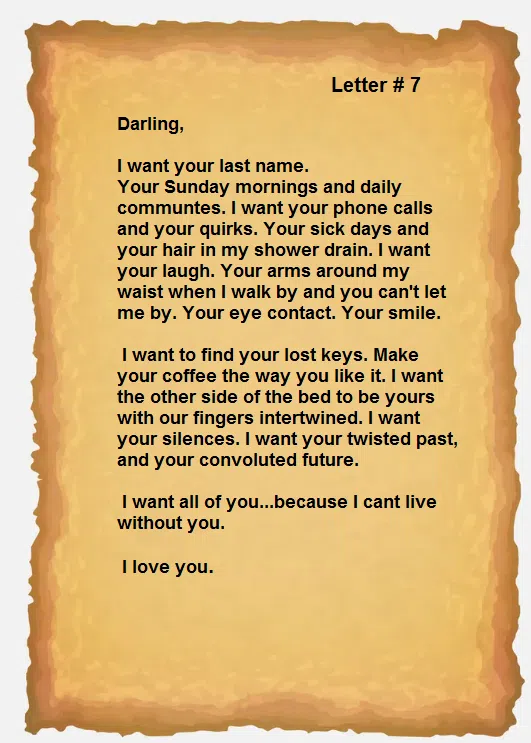 Letter # 7
Darling,
I want your last name.
Your Sunday mornings and daily
communtes. I want your phone calls
and your quirks. Your sick days and
your hair in my shower drain. I want
your laugh. Your arms around my
waist when I walk by and you can't let
me by. Your eye contact. Your smile.
I want to find your lost keys. Make
your coffee the way you like it. I want
the other side of the bed to be yours
with our fingers intertwined. I want
your silences. I want your twisted past,
and your convoluted future.
I want all of you...because I cant live
without you.
I love you.